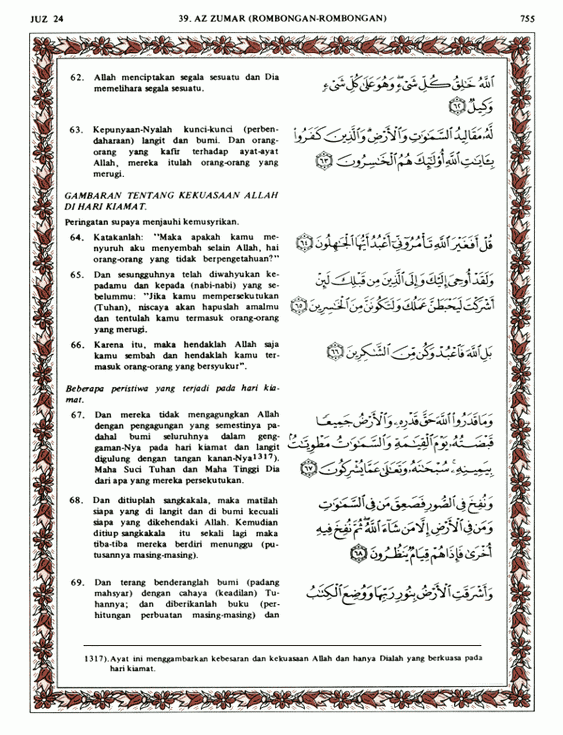 JUZ 24 39. AZ ZUMAR (ROMBONGAN-ROMBONGAN) 755
62. Allah menciptakan segala sesuatu dan Dia
memelihara segala sesuatu.
ٱللَّهُ خَٰلِقُ كُلِّ شَىْءٍ وَهُوَ عَلَىٰ كُلِّ شَىْءٍ
وَكِيلٌ ٦٢
63. Kepunyaan-Nyalah kunci-kunci (perben-
daharaan) langit dan bumi. Dan orang-
orang yang kafir terhadap ayat-ayat
Allah, mereka itulah orang-orang yang
merugi.
لَّهُۥ مَقَالِيدُ ٱلسَّمَٰوَٰتِ وَٱلْأَرْضِ وَٱلَّذِينَ كَفَرُوا۟
بِـَٔايَٰتِ ٱللَّهِ أُو۟لَٰٓئِكَ هُمُ ٱلْخَٰسِرُونَ ٦٣
GAMBARAN TENTANG KEKUASAAN ALLAH
DI HARI KIAMAT.
Peringatan supaya menjauhi kemusyrikan.
64. Katakanlah: "Maka apakah kamu me-
nyuruh aku menyembah selain Allah, hai
orang-orang yang tidak berpengetahuan?"
قُلْ أَفَغَيْرَ ٱللَّهِ تَأْمُرُوٓنِّىٓ أَعْبُدُ أَيُّهَا ٱلْجَٰهِلُونَ ٦٤
65. Dan sesungguhnya telah diwahyukan ke-
padamu dan kepada (nabi-nabi) yang se-
belummu: "Jika kamu mempersekutukan
(Tuhan), niscaya akan hapuslah amalmu
dan tentulah kamu termasuk orang-orang
yang merugi.
وَلَقَدْ أُوحِىَ إِلَيْكَ وَإِلَى ٱلَّذِينَ مِن قَبْلِكَ لَئِنْ
أَشْرَكْتَ لَيَحْبَطَنَّ عَمَلُكَ وَلَتَكُونَنَّ مِنَ ٱلْخَٰسِرِينَ ٦٥
66. Karena itu, maka hendaklah Allah saja
kamu sembah dan hendaklah kamu ter-
masuk orang-orang yang bersyukur".
بَلِ ٱللَّهَ فَٱعْبُدْ وَكُن مِّنَ ٱلشَّٰكِرِينَ ٦٦
Beberapa peristiwa yang terjadi pada hari kia-
mat.
67. Dan mereka tidak mengagungkan Allah
dengan pengagungan yang semestinya pa-
dahal bumi seluruhnya dalam geng-
gaman-Nya pada hari kiamat dan langit
digulung dengan tangan kanan-Nya1317).
Maha Suci Tuhan dan Maha Tinggi Dia
dari apa yang mereka persekutukan.
وَمَا قَدَرُوا۟ ٱللَّهَ حَقَّ قَدْرِهِۦ وَٱلْأَرْضُ جَمِيعًا
قَبْضَتُهُۥ يَوْمَ ٱلْقِيَٰمَةِ وَٱلسَّمَٰوَٰتُ مَطْوِيَّٰتٌۢ
بِيَمِينِهِۦ سُبْحَٰنَهُۥ وَتَعَٰلَىٰ عَمَّا يُشْرِكُونَ ٦٧
68. Dan ditiuplah sangkakala, maka matilah
siapa yang di langit dan di bumi kecuali
siapa yang dikehendaki Allah. Kemudian
ditiup sangkakala itu sekali lagi maka
tiba-tiba mereka berdiri menunggu (pu-
tusannya masing-masing).
وَنُفِخَ فِى ٱلصُّورِ فَصَعِقَ مَن فِى ٱلسَّمَٰوَٰتِ
وَمَن فِى ٱلْأَرْضِ إِلَّا مَن شَآءَ ٱللَّهُ ثُمَّ نُفِخَ فِيهِ
أُخْرَىٰ فَإِذَا هُمْ قِيَامٌ يَنظُرُونَ ٦٨
69. Dan terang benderanglah bumi (padang
mahsyar) dengan cahaya (keadilan) Tu-
hannya; dan diberikanlah buku (per-
hitungan perbuatan masing-masing) dan
وَأَشْرَقَتِ ٱلْأَرْضُ بِنُورِ رَبِّهَا وَوُضِعَ ٱلْكِتَٰبُ
1317). Ayat ini menggambarkan kebesaran dan kekuasaan Allah dan hanya Dialah yang berkuasa pada
hari kiamat.